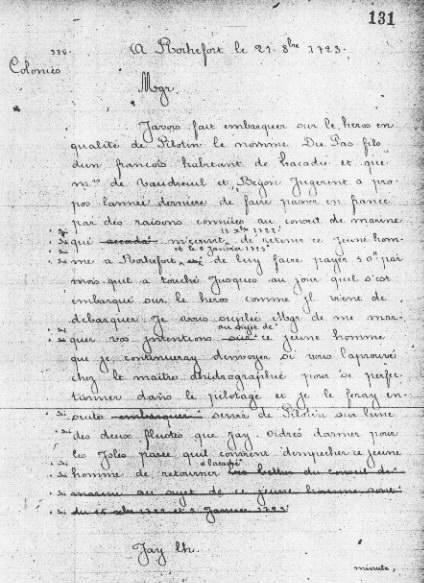 131
338.
A Rochefort le 21. 8bre 1723.
Colonies
Mgr
Javois fait embarquer sur le heros en
qualité de Pilotin le nommé Du Pas fils
dun francois habitant de Lacadie et que
mrs de Vaudreuil et Begon Jugerent à pro-
pos lannée derniere de faire passer en france
par des raisons connües au conseil de marine
11 xbre 1722
qui accada m'ecrivit de retenir ce jeune hom-
et le 2 Janvier 1723
me a Rochefort, de luy faire payer 50 par
mois quil a touché Jusques au jour quil s'est
embarqué sur le heros comme Jl vient de
debarquer Je vous suplie Mgr de me mar-
au sujet de
quer vos Jntentions sur ce jeune homme
que je continueray denvoyer si vous laprouvé
chez le maitre dhidrographie pour se perfec-
tionner dans le pilotage et je le feray en-
suite embarquer servir de Pilotin sur lune
des deux fluotes que Jay ordres darmer pour
les Jsles parce quil convient dempecher ce jeune
à lacadie
homme de retourner les lettres du conseil de
marine au sujet de ce jeune homme sont
du 15 xbre 1722 et 2 Janvier 1723
Jay lh.
minute,